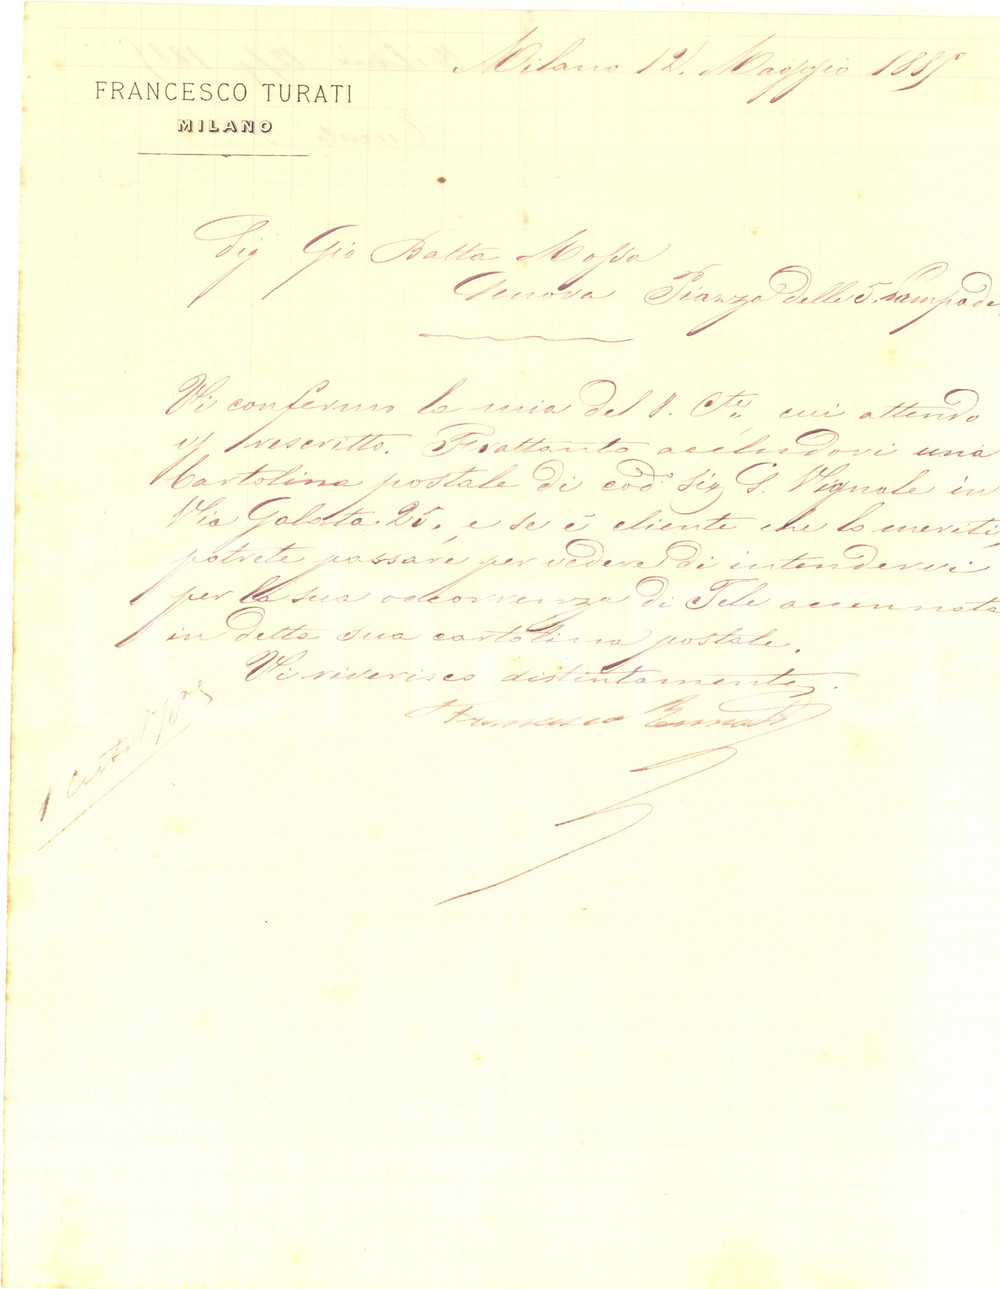 Milano 12. Maggio 1885
FRANCESCO TURATI
MILANO
Sig Gio Batta Mossa
Genova Piazza delle 5. Lampade,
Vi confermo la mia del 8. Cte,, cui attendo
rescritto. Frattanto accludovi una
Cartolina postale di cod. Sig G. Vignale in
Via Galata. 25, e se è cliente che lo meriti,
potrete passare per vedere di intendervi
per la sua occorrenza di Tele accennata
in detta sua cartolina postale.
Vi riverisco distintamente.
Francesco Turati
1